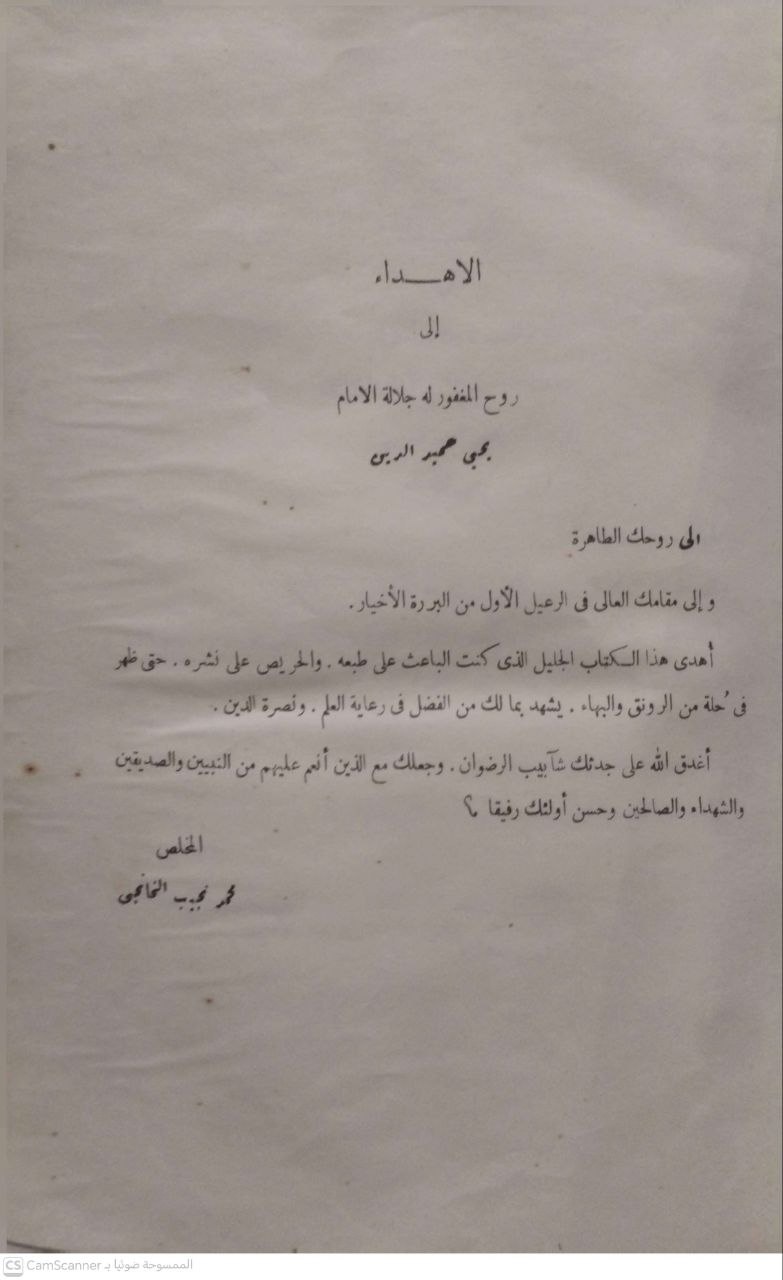 الاهـــداء
إلى
روح المغفور له جلالة الامام
يحيى حميد الدين
الى روحك الطاهرة
وإلى مقامك العالى فى الرعيل الأول من البررة الأخيار .
أهدى هذا الكتاب الجليل الذى كنت الباعث على طبعه . والحريص على نشره . حتى ظهر
فى حُلة من الرونق والبهاء . يشهد بما لك من الفضل فى رعاية العلم . ونصرة الدين .
أغدق الله على جدثك شآبيب الرضوان . وجعلك مع الذين أنعم عليهم من النبيين والصديقين
والشهداء والصالحين وحسن أولئك رفيقا م؟
المخلص
محمد نجيب الخانجى
CS CamScanner الممسوحة ضوئيا بـ